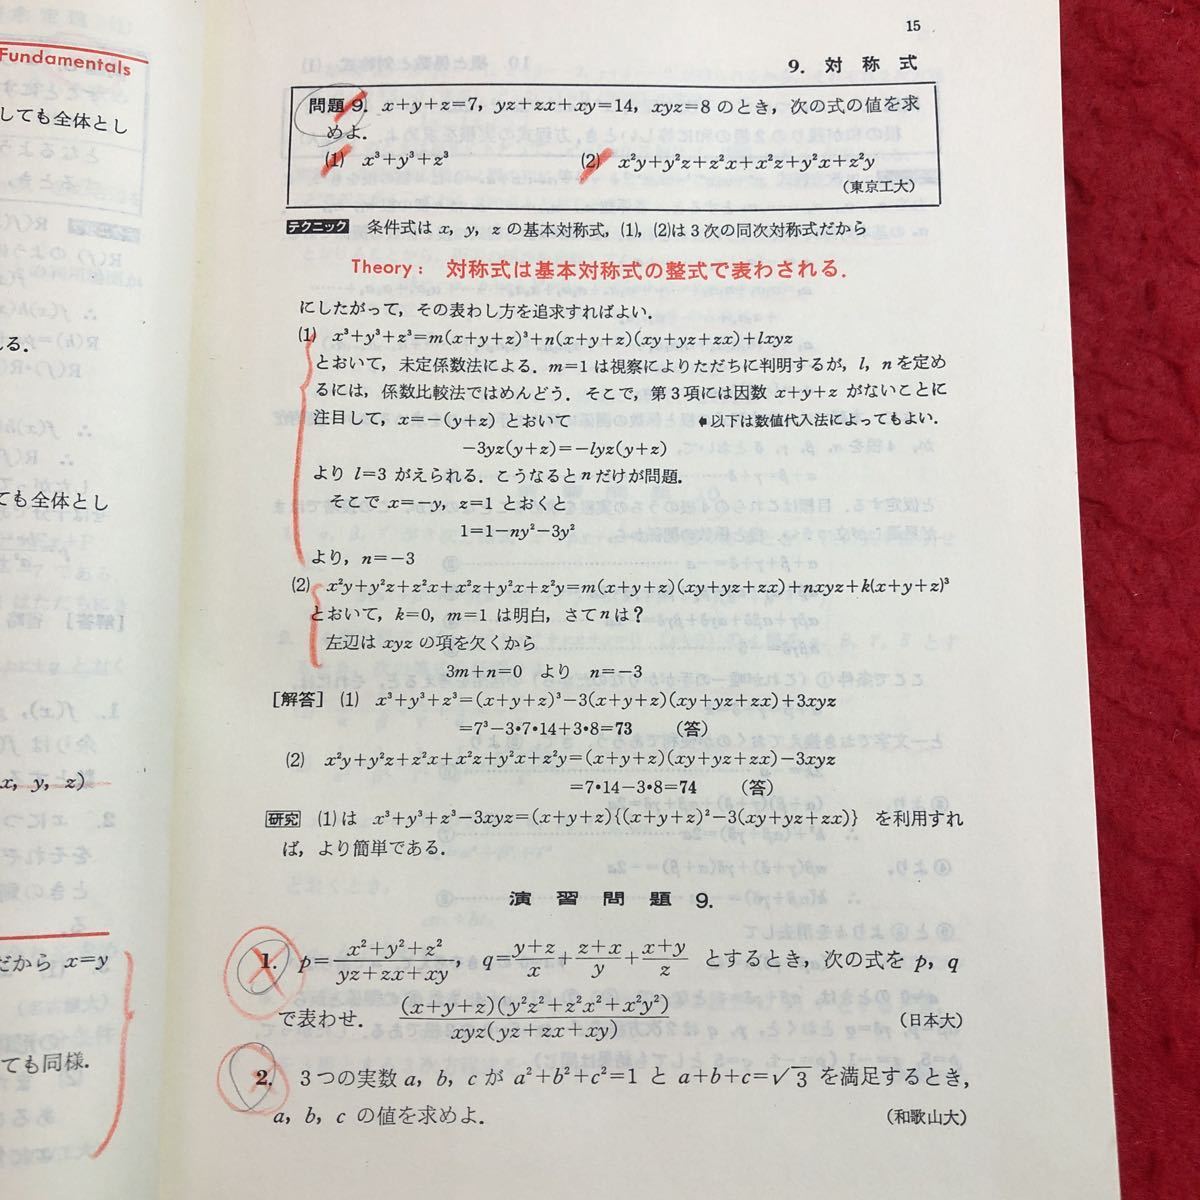 Fundamentals
しても全体とし
る.
ても全体とし
x, y, z)
だから x=y
ても同様.
15
9. 対称式
問題 9. x+y+z=7, yz+zx+xy=14, xyz=8 のとき, 次の式の値を求
めよ.
(1) x³+y³+z³ (2) x²y+y²z+z²x+x²z+y²x+z²y
(東京工大)
テクニック 条件式は x, y, z の基本対称式, (1), (2)は3次の同次対称式だから
Theory: 対称式は基本対称式の整式で表わされる.
にしたがって, その表わし方を追求すればよい.
(1) x³+y³+z³=m(x+y+z)³+n(x+y+z)(xy+yz+zx)+lxyz
とおいて, 未定係数法による. m=1 は視察によりただちに判明するが, l, n を定め
るには, 係数比較法ではめんどう. そこで, 第3項には因数 x+y+z がないことに
注目して, x=−(y+z) とおいて ←以下は数値代入法によってもよい.
−3yz(y+z)=−lyz(y+z)
より l=3 がえられる. こうなると n だけが問題.
そこで x=−y, z=1 とおくと
1=1−ny²−3y²
より, n=−3
(2) x²y+y²z+z²x+x²z+y²x+z²y=m(x+y+z)(xy+yz+zx)+nxyz+k(x+y+z)³
とおいて, k=0, m=1 は明白, さて n は?
左辺は xyz の項を欠くから
3m+n=0 より n=−3
[解答] (1) x³+y³+z³=(x+y+z)³−3(x+y+z)(xy+yz+zx)+3xyz
=7³−3•7•14+3•8=73 (答)
(2) x²y+y²z+z²x+x²z+y²x+z²y=(x+y+z)(xy+yz+zx)−3xyz
=7•14−3•8=74 (答)
研究 (1)は x³+y³+z³−3xyz=(x+y+z){(x+y+z)²−3(xy+yz+zx)} を利用すれ
ば, より簡単である.
演習問題 9.
1. p=(x²+y²+z²)/(yz+zx+xy), q=(y+z)/x+(z+x)/y+(x+y)/z とするとき, 次の式を p, q
で表わせ. (x+y+z)(y²z²+z²x²+x²y²)/xyz(yz+zx+xy) (日本大)
2. 3つの実数 a, b, c が a²+b²+c²=1 と a+b+c=√3 を満足するとき,
a, b, c の値を求めよ. (和歌山大)